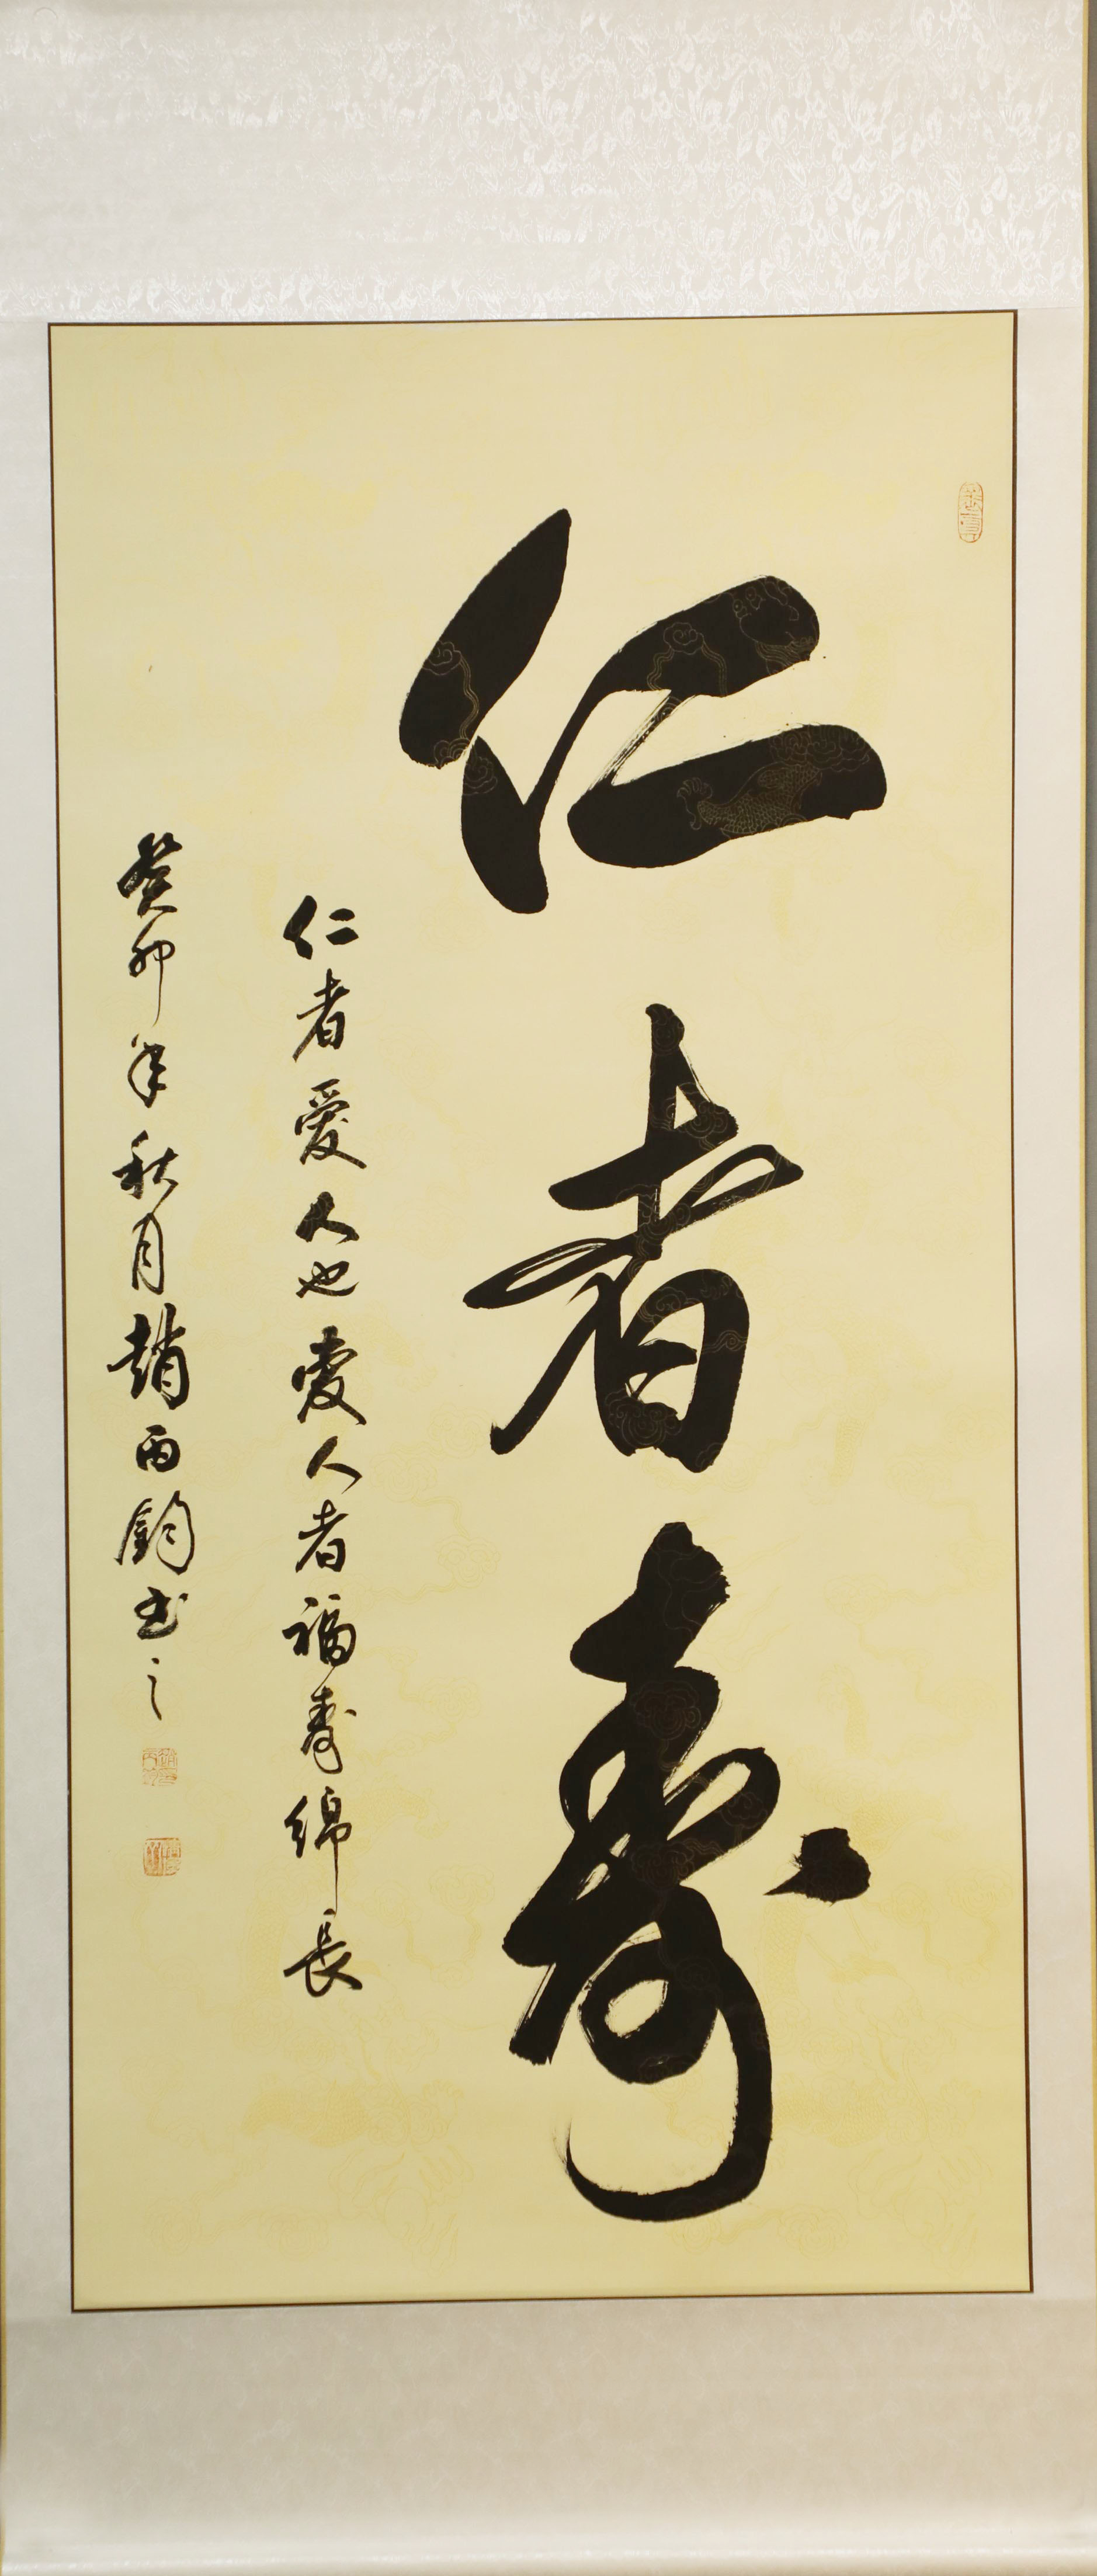 仁者寿
仁者愛人也愛人者福寿綿長
癸卯年秋月趙丙鈞书之